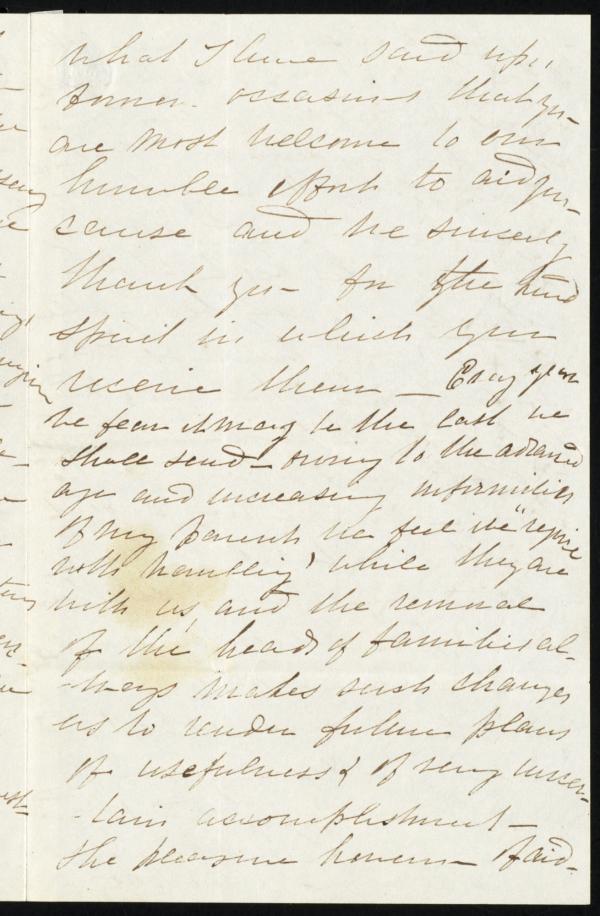 what I have said upon
former occasions that you
are most welcome to our
humble efforts to aid your
cause and we sincerely
thank you for the kind
spirit in which you
receive them – Every year
we fear it may be the last we
shall send – owing to the advanced
age and increasing infirmities
of my parents we feel we "rejoice
with trembling" while they are
with us, and the removal
of the heads of families al-
-ways makes such changes
as to render future plans
of usefulness & of very uncer-
-tain accomplishment –
the pleasure however of aid-